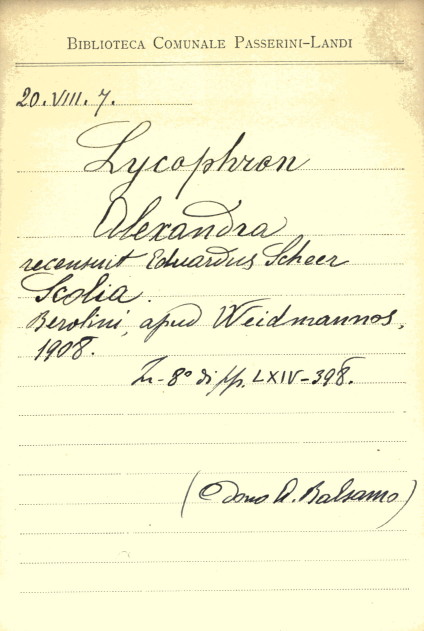 BIBLIOTECA COMUNALE PASSERINI-LANDI
20. VIII. 7.
Lycophron
Alexandra
recensuit Eduardus Scheer
Scolia.
Berolini, apud Weidmannos,
1908.
In-8° di pp. LXIV-398.
(Dono A. Balsamo)